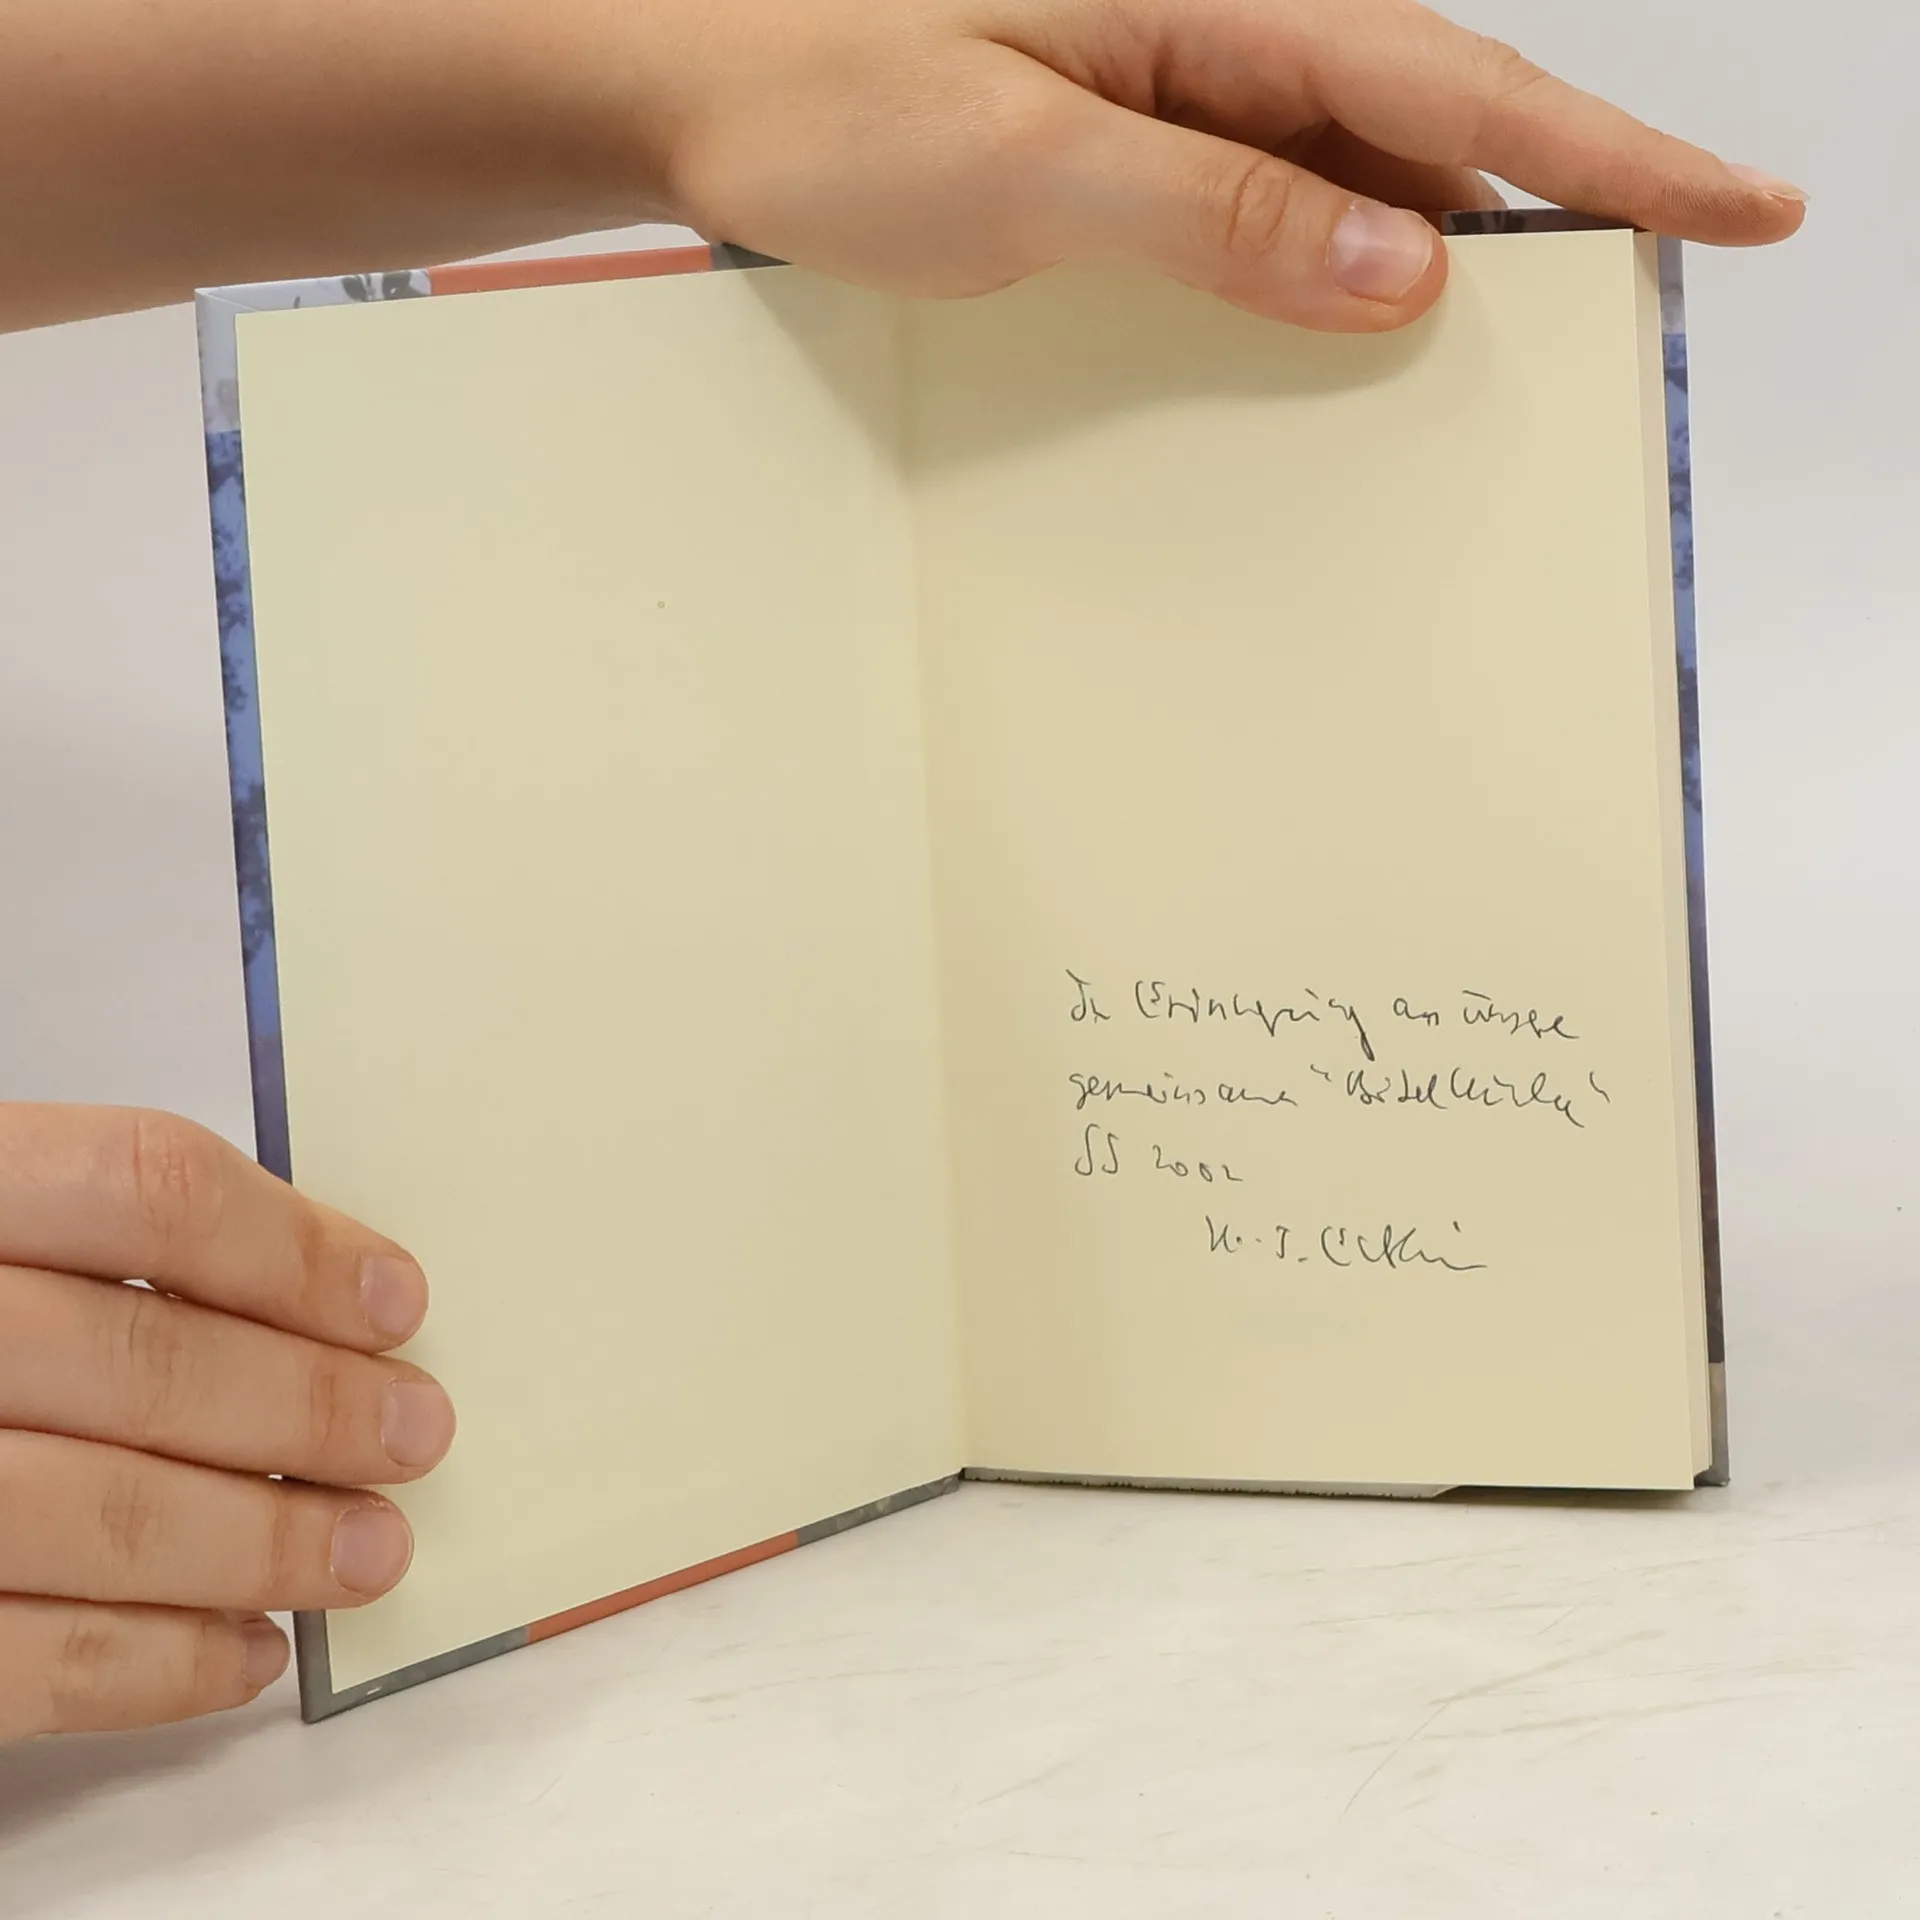 In Erinnerung an unsere
gemeinsame "Bibellektüre"
SS 2002